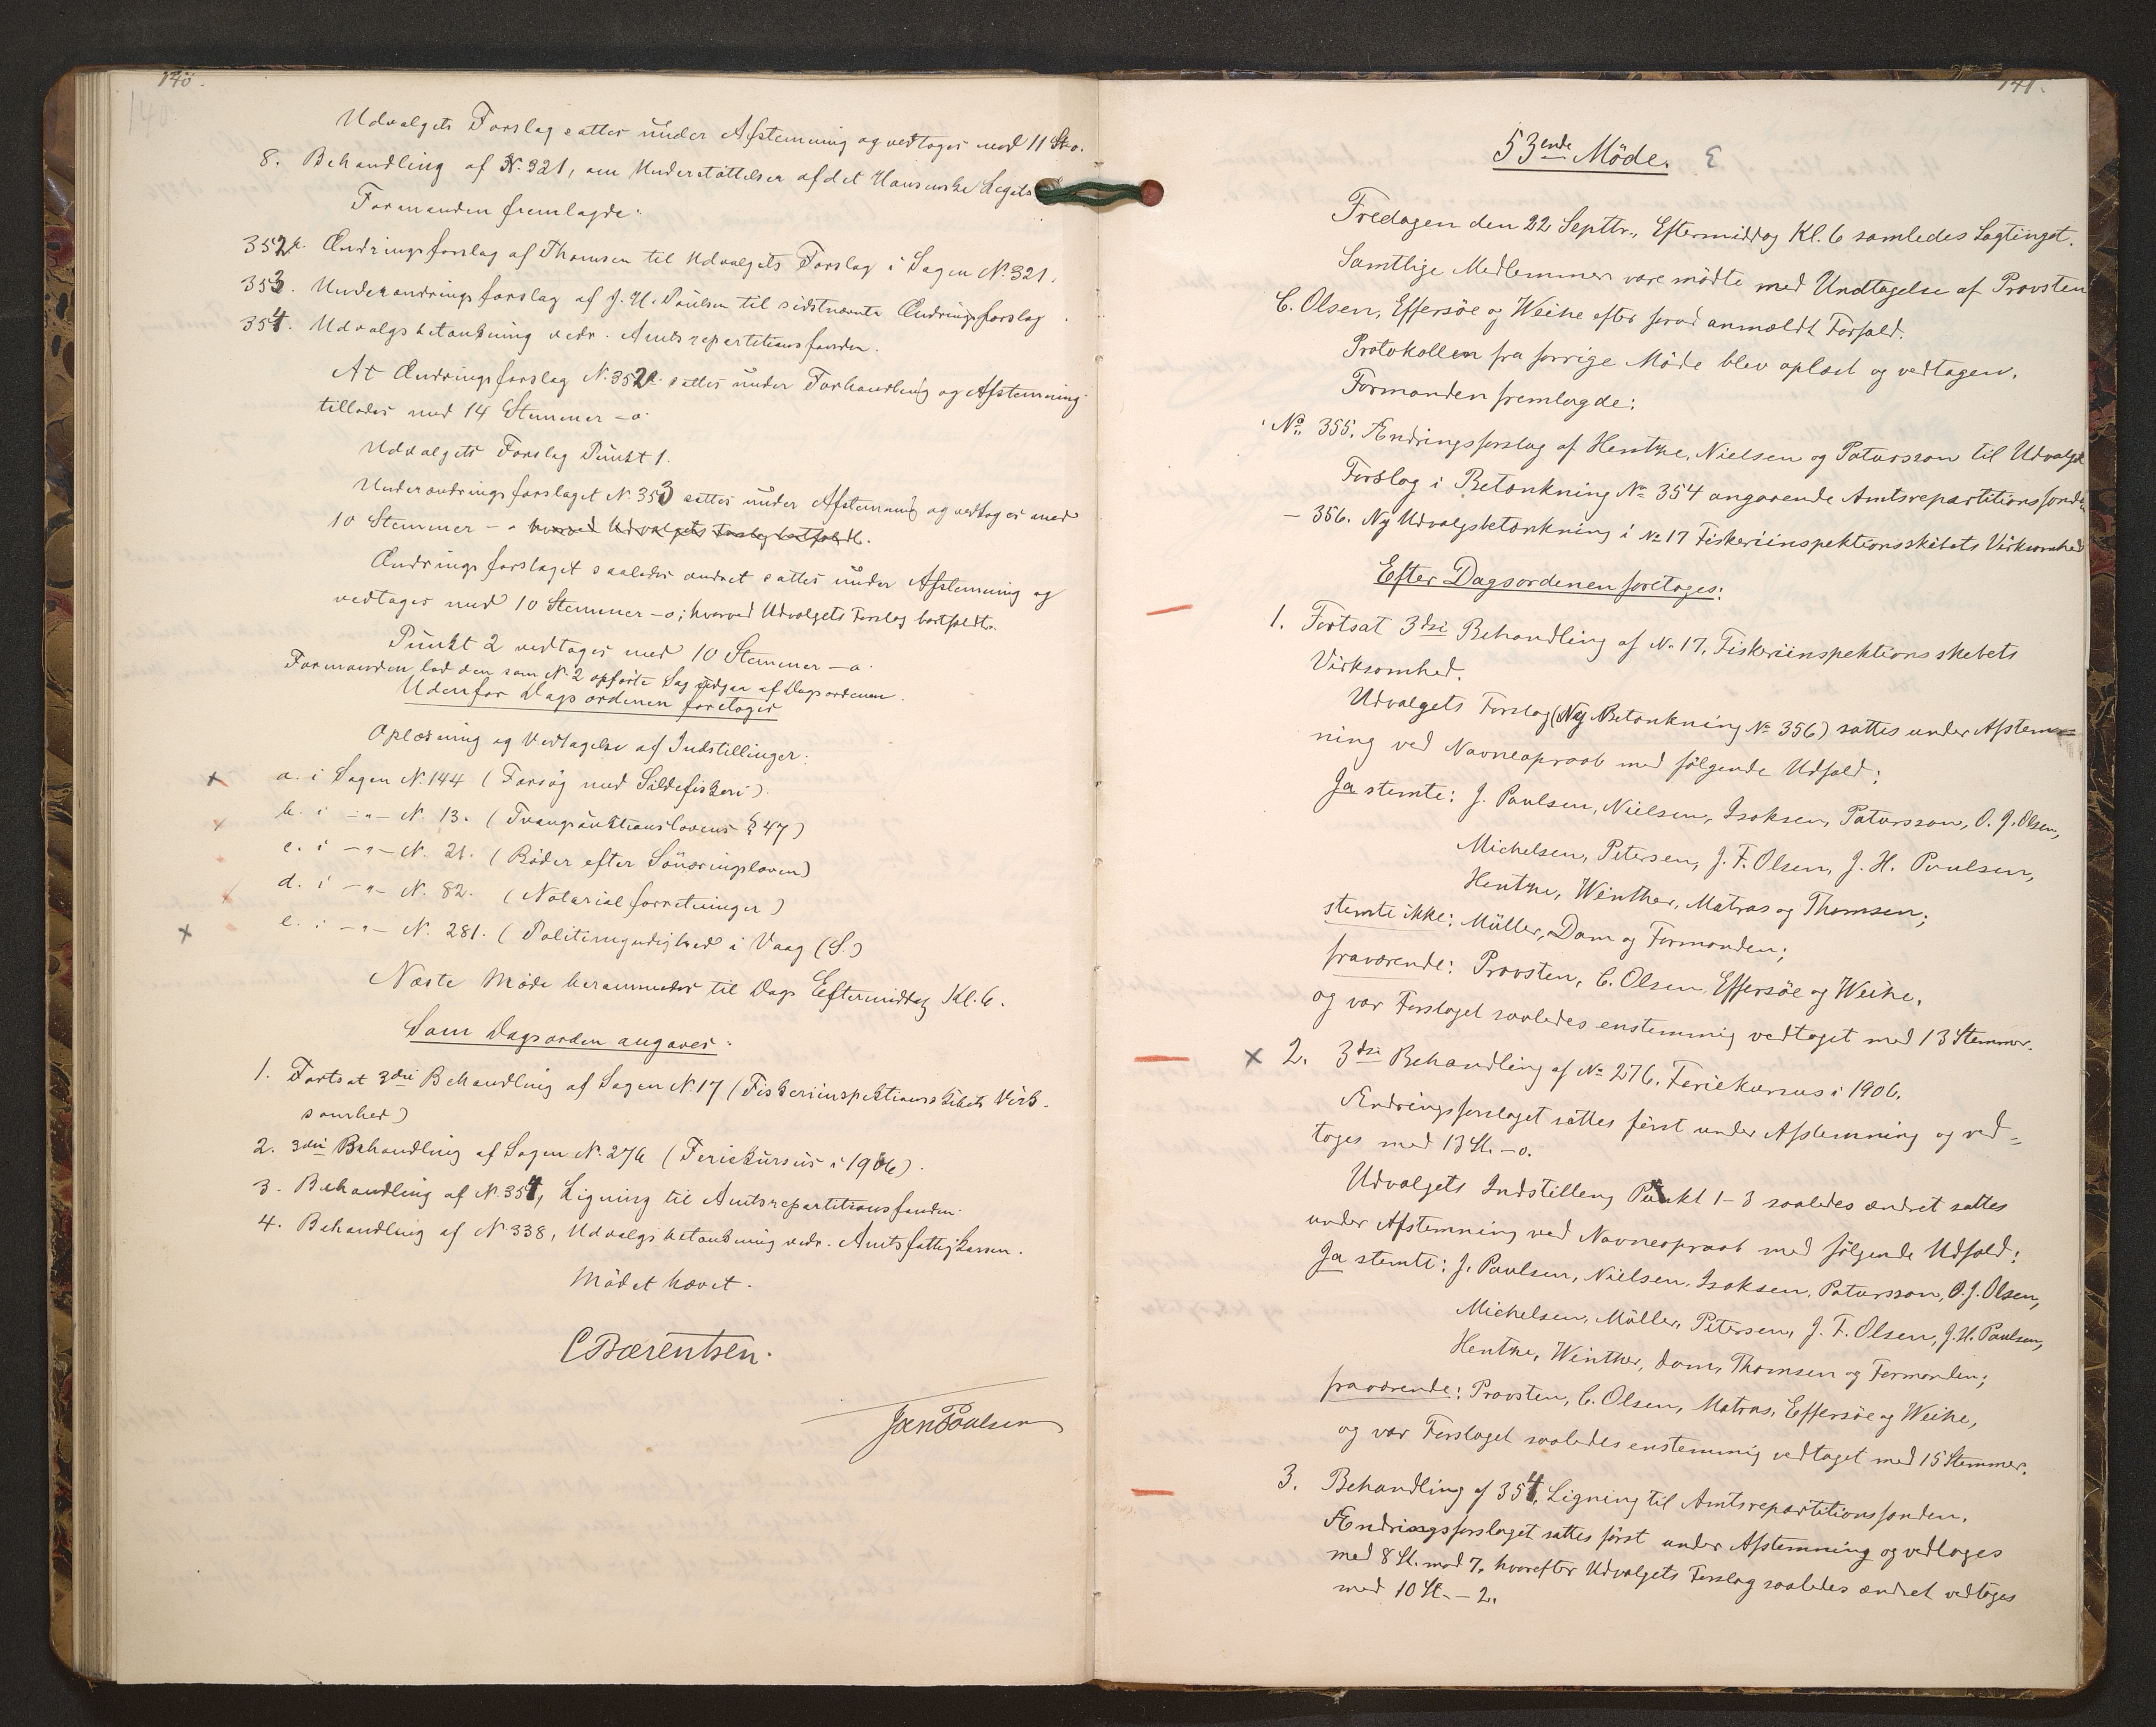 140.
Udvalgets Forslag sattes under Afstemning og vedtoges med 11 St-o.
8. Behandling af N. 321, om Understøttelser af det Hansenske Legat
Formanden fremlagde:
352. Ændringsforslag af Thomsen til Udvalgets Forslag i Sagen N. 321.
353. Underændringsforslag af J. H. Paulsen til sidstnævnte Ændringsforslag.
354. Udvalgsbetænkning vedr. Amtsrepartitionsfonden.
At Ændringsforslag N. 352 sattes under Forhandling og Afstemning
tillodes med 14 Stemmer - o
Udvalgets Forslag Punkt 1.
Underændringsforslaget N. 353 sattes under Afstemning og vedtoges med
10 Stemmer - o hvorved Udvalgets Forslag bortfaldt.
Ændringsforslaget saaledes ændret sattes under Afstemning og
vedtoges med 10 Stemmer - o; hvorved Udvalgets Forslag bortfaldt.
Punkt 2 vedtoges med 10 Stemmer - o.
Formanden lod den som N. 2 opførte Sag udgaa af Dagsordenen.
Udenfor Dagsordenen foretoges
Oplæsning og Vedtagelse af Indstillinger:
a. i Sagen N. 144 (Forsøg med Sildefiskeri).
b. i -"- N. 13. (Tvangsauktionslovens § 47)
c. i -"- N. 21. (Bøder efter Snæringsloven)
d. i -"- N. 82. (Notarialforretninger)
e. i -"- N. 281. (Politimyndighed i Vaag (S.)
Næste Møde berammedes til Dags Eftermiddag Kl. 6.
Som Dagsorden angaves:
1. Fortsat 3die Behandling af Sagen N. 17 (Fiskeriinspektionsskibets Virk-
somhed)
2. 3die Behandling af Sagen N. 276 (Feriekursus i 1906).
3. Behandling af N. 354, Ligning til Amtsrepartitionsfonden.
4. Behandling af N. 338, Udvalgsbetænkning vedr. Amtsfattigkassen.
Mødet hævet.
CBærentsen.
JoenPoulsen
141.
53ende Møde.
Fredagen den 22 Septbr., Eftermiddag Kl. 6 samledes Lagtinget.
Samtlige Medlemmer vare mødte med Undtagelse af Provsten
C. Olsen, Effersøe og Weihe efter forud anmeldt Forfald.
Protokollen fra forrige Møde blev oplæst og vedtagen.
Formanden fremlagde:
No. 355. Ændringsforslag af Hentze, Nielsen og Patursson til Udvalgets
Forslag i Betænkning No 354 angaaende Amtsrepartitionsfonden
- 356. Ny Udvalgsbetænkning i No 17 Fiskeriinspektionsskibets Virksomhed
Efter Dagsordenen foretoges:
1. Fortsat 3die Behandling af No 17, Fiskeriinspektionsskebets
Virksomhed.
Udvalgets Forslag (Ny Betænkning No 356) sattes under Afstem-
ning ved Navneopraab med følgende Udfald:
Ja stemte: J. Poulsen, Nielsen, Isaksen, Patursson, O. J. Olsen,
Michelsen, Petersen, J. F. Olsen, J. H. Poulsen,
Hentze, Winther, Matras og Thomsen;
stemte ikke: Müller, Dam og Formanden;
fraværende: Provsten, C. Olsen, Effersøe og Weihe,
og var Forslaget saaledes enstemmig vedtaget med 13 Stemmer.
2. 3die Behandling af No 276. Feriekursus i 1906.
Ændringsforslaget sattes først under Afstemning og ved-
toges med 13 St. - o.
Udvalgets Indstilling Punkt 1-3 saaledes ændret sattes
under Afstemning ved Navneopraab med følgende Udfald:
Ja stemte: J. Poulsen, Nielsen, Isaksen, Patursson, O. J. Olsen,
Michelsen, Müller, Petersen, J. F. Olsen, J. H. Poulsen,
Hentze, Winther, Dam, Thomsen og Formanden;
fraværende: Provsten, C. Olsen, Matras, Effersøe og Weihe,
og var Forslaget saaledes enstemmig vedtaget med 15 Stemmer.
3. Behandling af 354, Ligning til Amtsrepartitionsfonden.
Ændringsforslaget sattes først under Afstemning og vedtoges
med 8 St. mod 7, hvorefter Udvalgets Forslag saaledes ændret vedtoges
med 10 St. - 2.